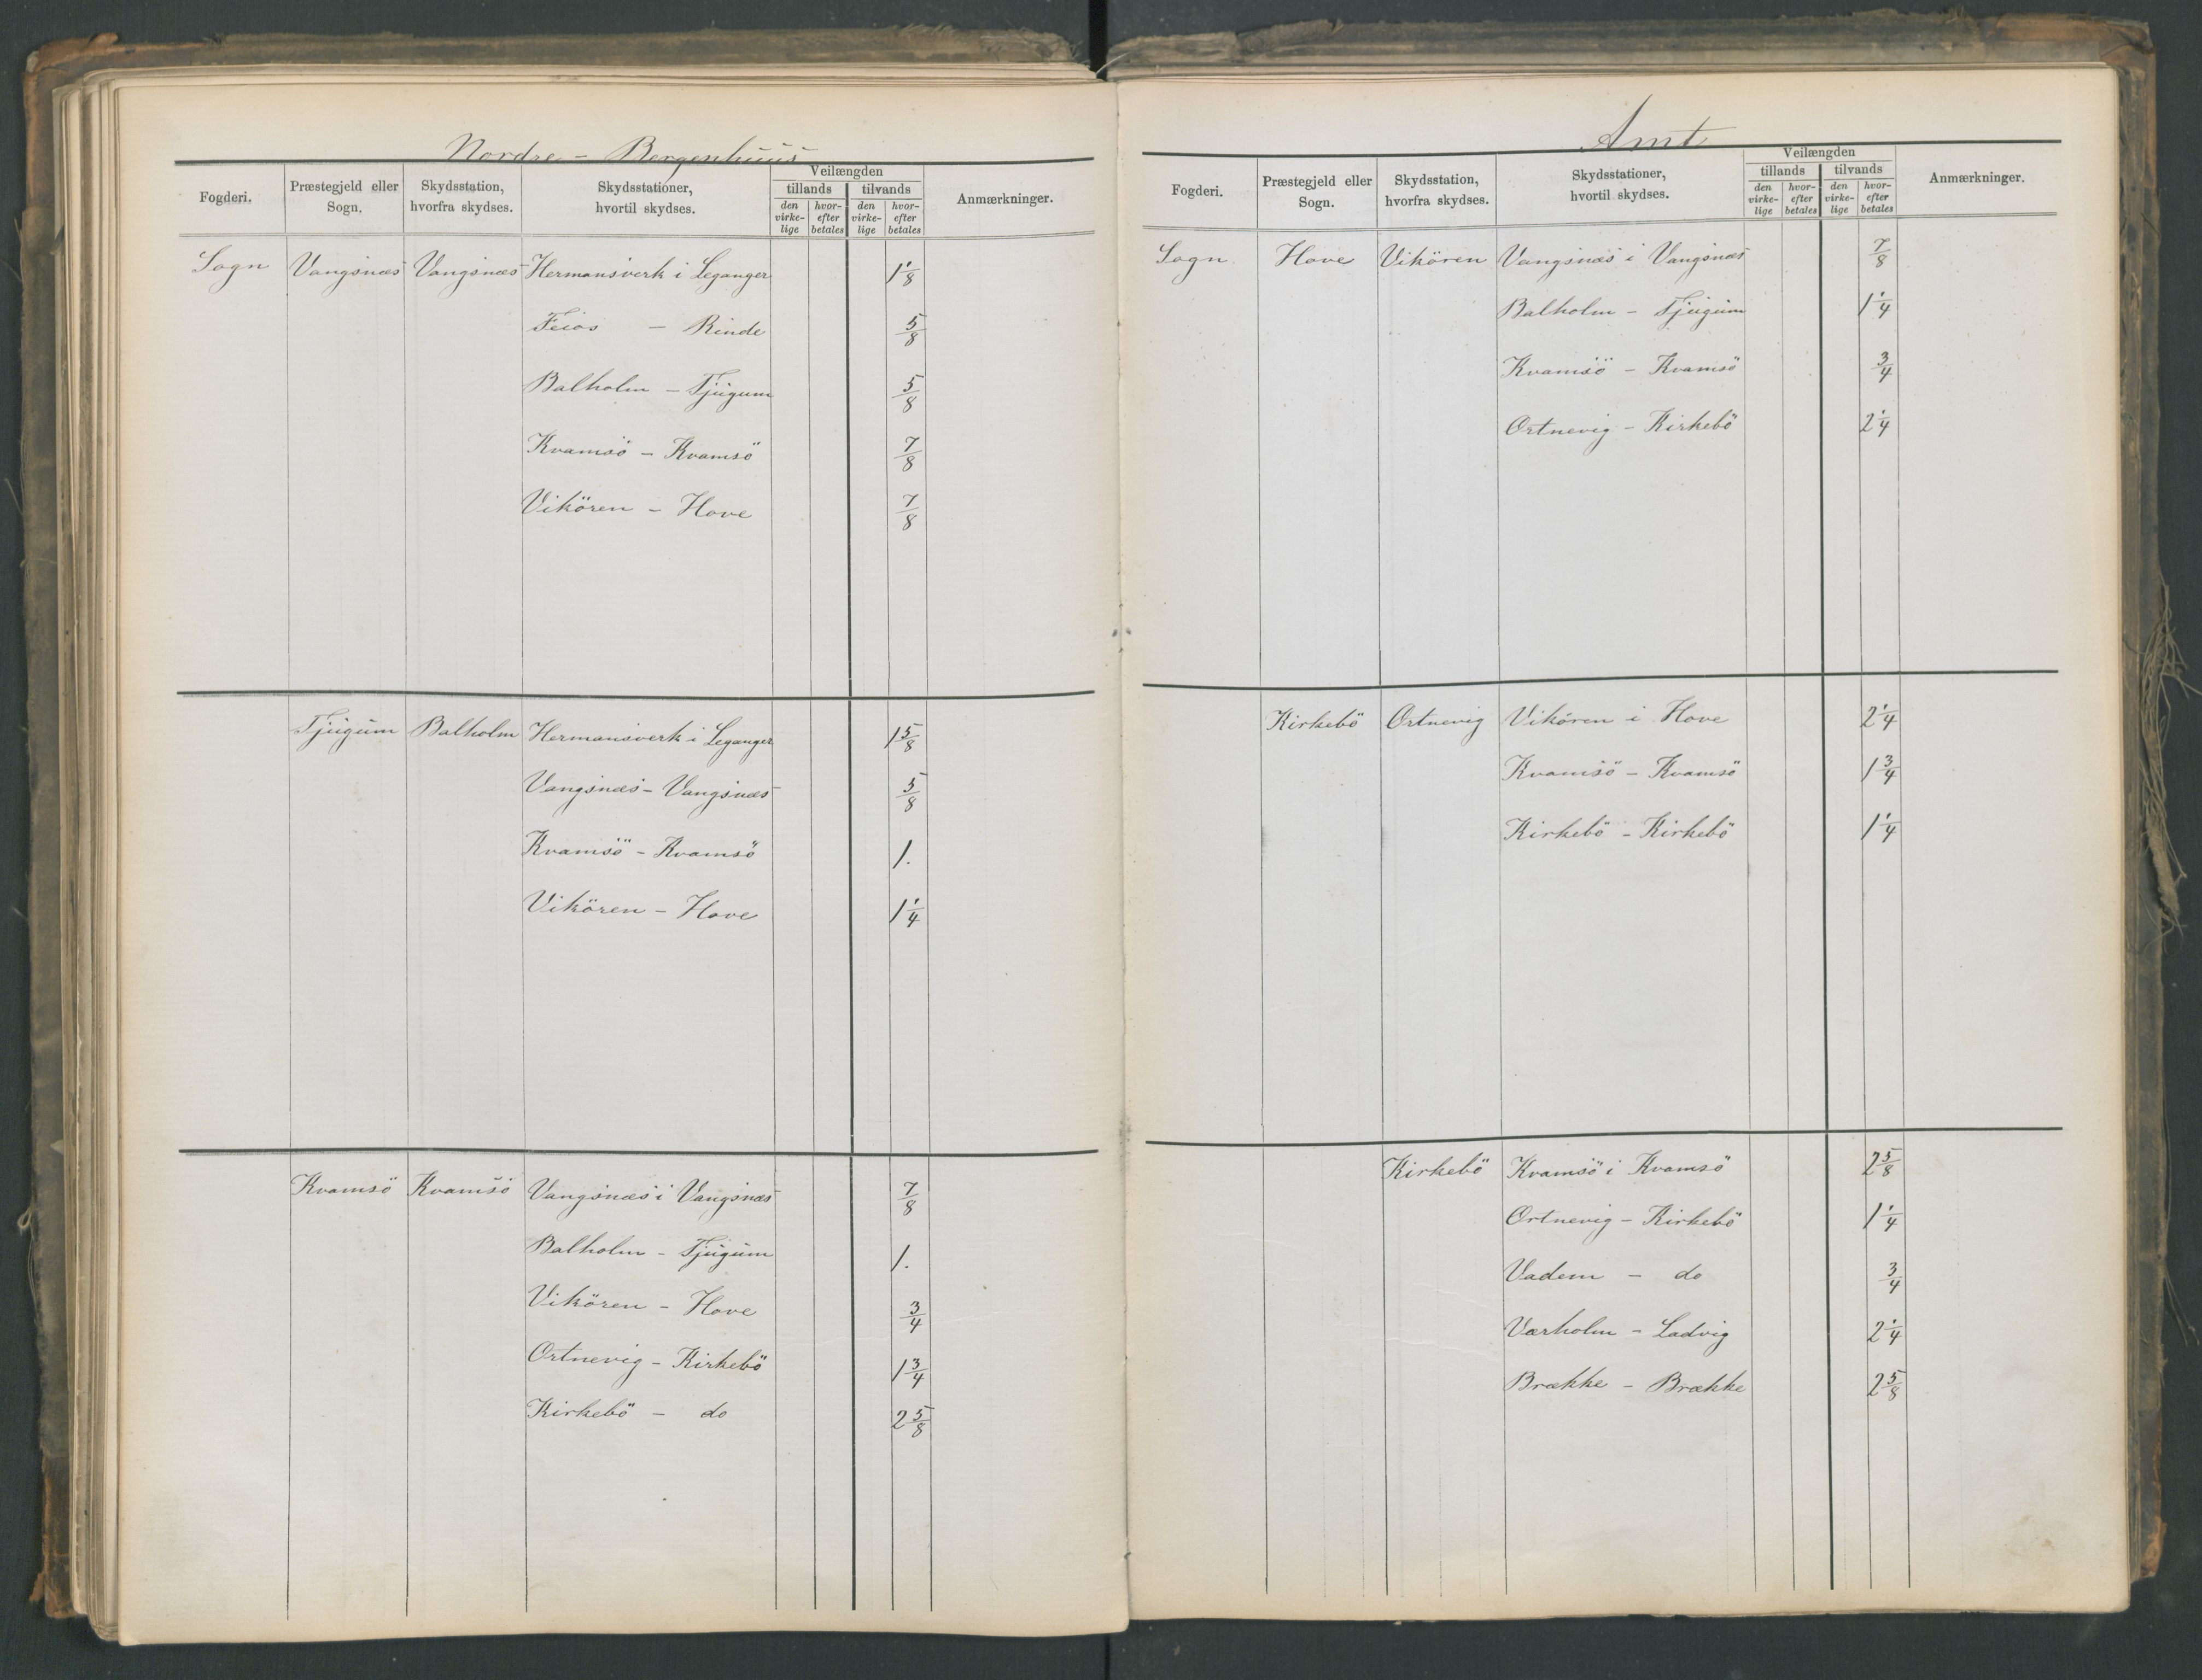 Nordre - Bergenhuus
Fogderi. Præstegjeld eller Sogn. Skydsstation, hvorfra skydses. Skydsstationer, hvortil skydses. Veilængden tillands tilvands den virke-lige hvor-efter betales den virke-lige hvor-efter betales Anmærkninger.
Sogn Vangsnæs Vangsnæs Hermansverk i Leganger 1 1/8
Feios - Rinde 5/8
Balholm - Tjugum 5/8
Kvamsö - Kvamsö 7/8
Vikören - Hove 7/8
Tjugum Balholm Hermansverk i Leganger 1 5/8
Vangsnæs - Vangsnæs 5/8
Kvamsö - Kvamsö 1.
Vikören - Hove 1 1/4
Kvamsö Kvamsö Vangsnæs i Vangsnæs 7/8
Balholm - Tjugum 1.
Vikören - Hove 3/4
Ortnevig - Kirkebö 1 3/4
Kirkebö - do 2 5/8
Amt
Fogderi. Præstegjeld eller Sogn. Skydsstation, hvorfra skydses. Skydsstationer, hvortil skydses. Veilængden tillands tilvands den virke-lige hvor-efter betales den virke-lige hvor-efter betales Anmærkninger.
Sogn Hove Vikören Vangsnæs i Vangsnæs 7/8
Balholm - Tjugum 1 1/4
Kvamsö - Kvamsö 3/4
Ortnevig - Kirkebö 2 1/4
Kirkebö Ortnevig Vikören i Hove 2 1/4
Kvamsö - Kvamsö 1 3/4
Kirkebö - Kirkebö 1 1/4
Kirkebö Kvamsö i Kvamsö 2 5/8
Ortnevig - Kirkebö 1 1/4
Vadem - do 3/4
Værholm - Ladvig 2 1/4
Brække - Brække 2 5/8